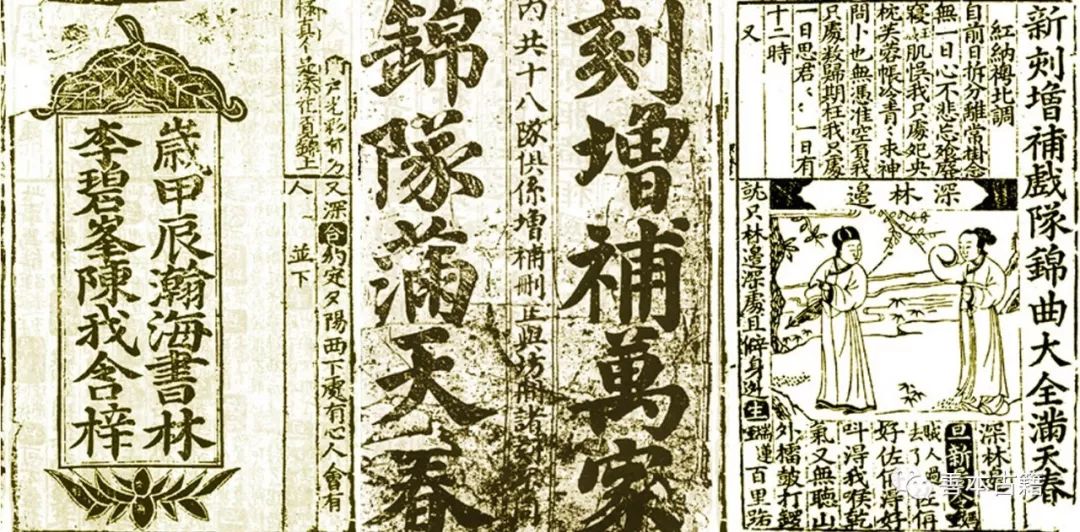 新刻增補戲隊錦曲大全滿天春
紅納襖北調
自前日拆分離常掛念
無一日心不悲忘飧廢
寢紅肌我只處犯央
枕芙蓉帳冷青〻夾神
問卜也無憑准空有我
只處數歸期枉我只處
日思君〻一日有
十二時
又
深林邊
深林邊
旦新
賊人過
去了
好佐淂好
叫淂我喉乾
氣又無聽山
外擂皷打鑼
生運百里路
説只林邊深處且僻身
刻增補萬家
内共十八隊俱係增補刪正與坊間諸刻同
錦隊滿天春
門戶光彩
又深合約定夕陽西下處有心人會有
人 並下
歲甲辰瀚海書林
李碧峯陳我含梓
善本古籍